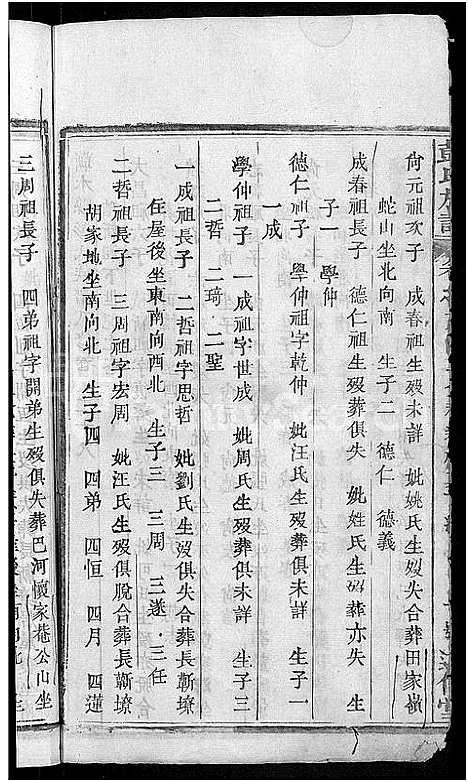 尙元祖次子　成春祖生歿未詳　妣姚氏生歿失合葬田家嶺
蛇山坐北向南　生子二　德仁　德義
成春祖長子　德仁祖生歿葬俱失　妣姓氏生歿葬亦失
子一　學仲
德仁祖子　學仲祖字乾仲　妣汪氏生歿葬俱未詳　生子一
一成
學仲祖子　一成祖字世成　妣周氏生歿葬俱未詳　生子三
二哲　二琦　二聖
一成祖長子　二哲祖字思哲　妣劉氏生歿俱失合葬長蔪墩
住屋後坐東南向西北　生子三　三周　三遂　三任
二哲祖長子　三周祖字宏周　妣汪氏生歿俱脫合葬長蔪墩
胡家地坐南向北　生子四　四弟　四恒　四月　四蓮
三周祖長子　四弟祖字開弟生歿俱失葬巴河懷家菴公山坐